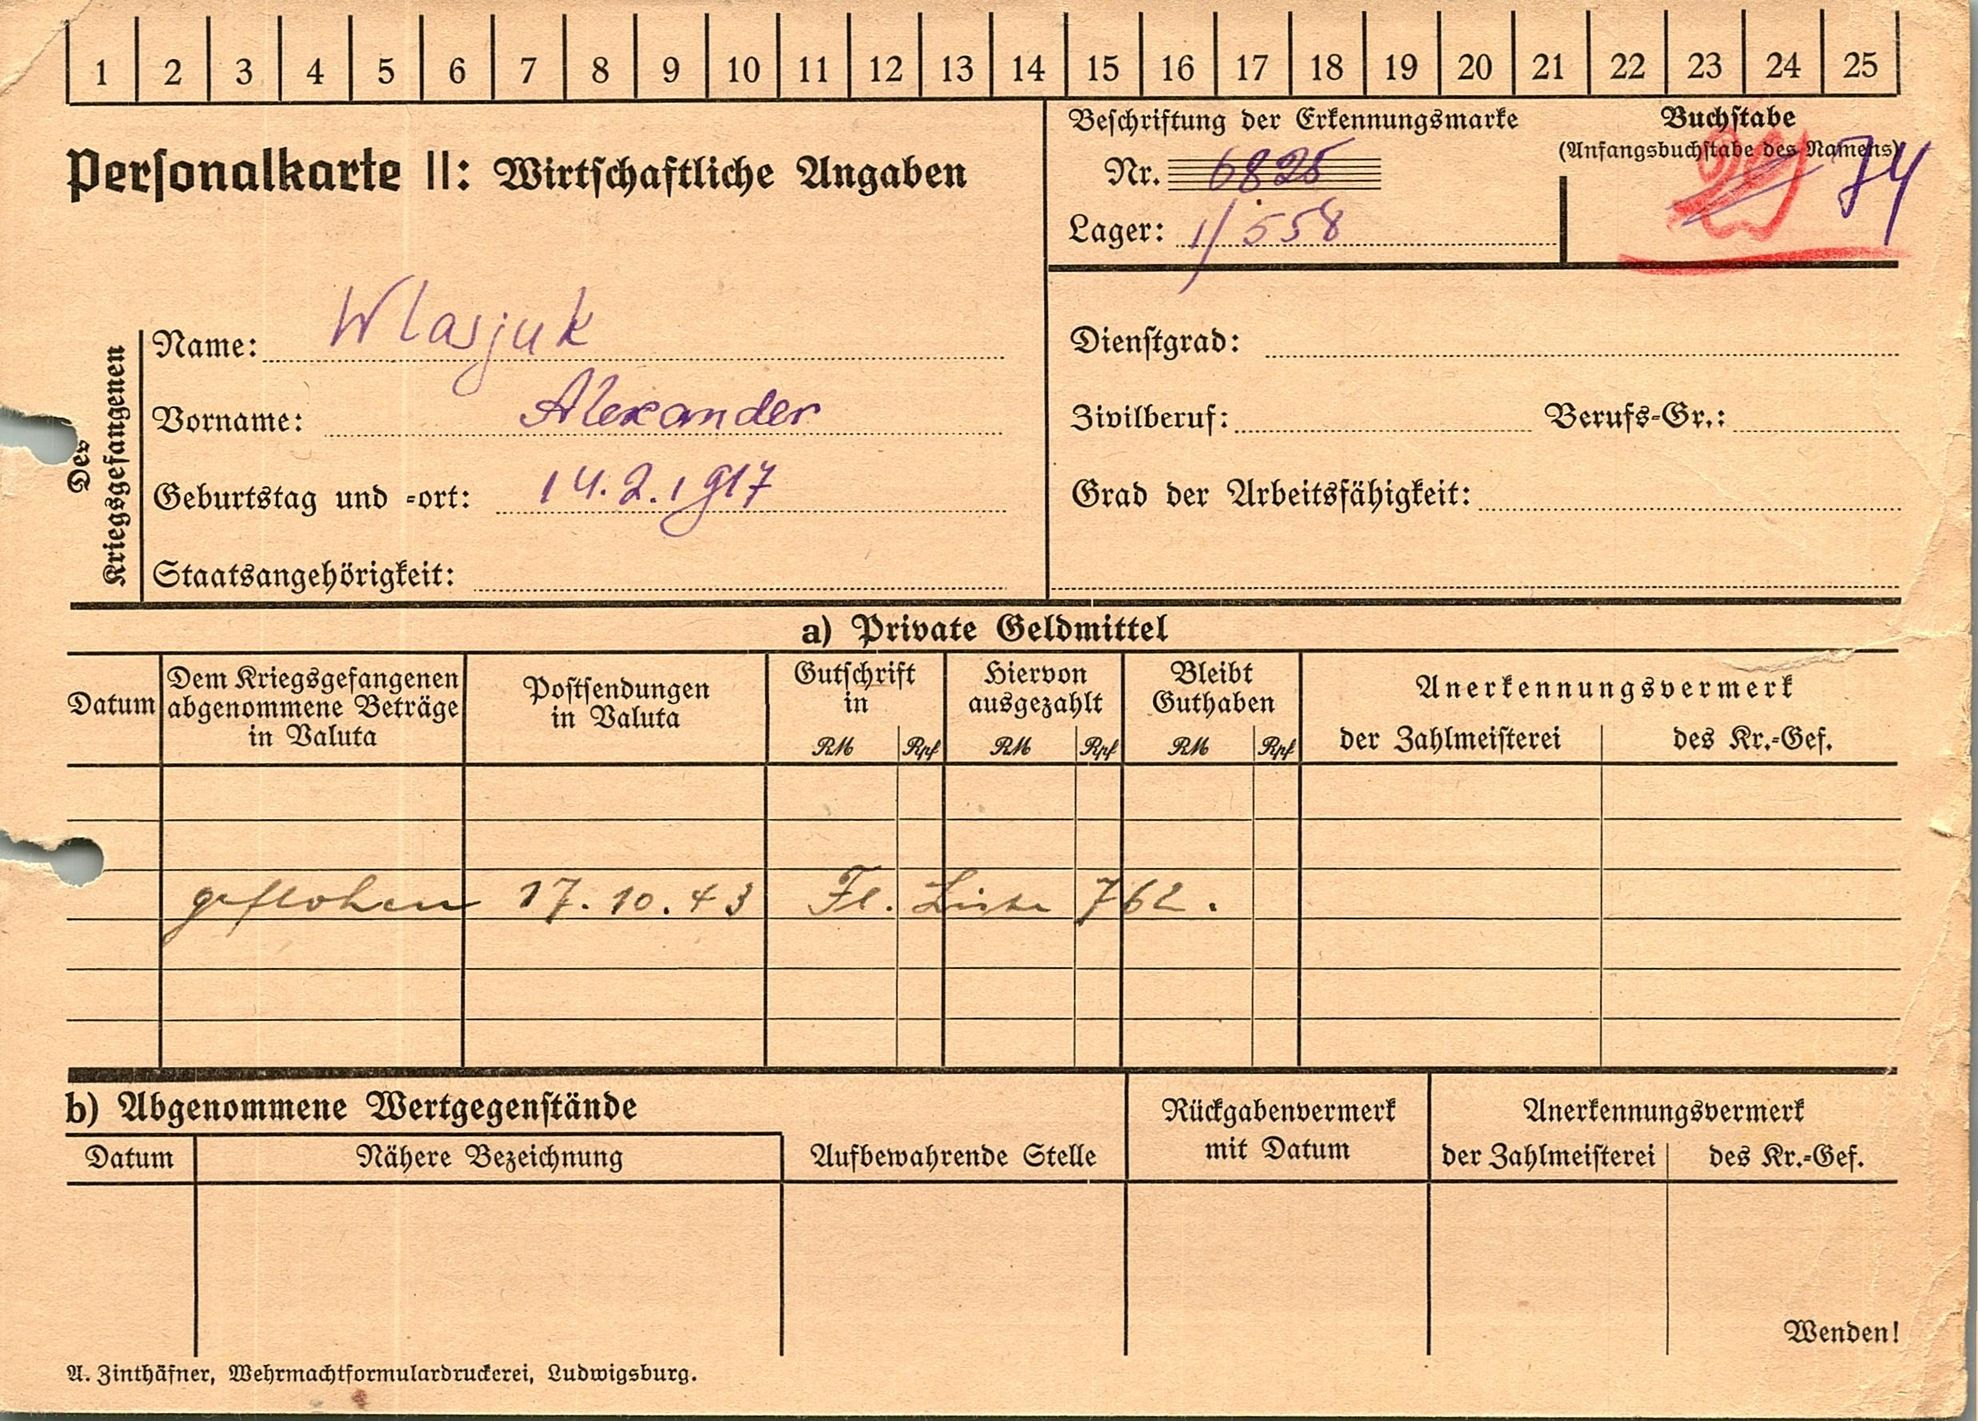 1 2 3 4 5 6 7 8 9 10 11 12 13 14 15 16 17 18 19 20 21 22 23 24 25
Personalkarte II: Wirtschaftliche Angaben
Beschriftung der Erkennungsmarke
Nr. 6825
Lager: 1/558
Buchstabe
(Anfangsbuchstabe des Namens)
74
Des Kriegsgefangenen
Name: Wlasjuk
Vorname: Alexander
Geburtstag und -ort: 14.2.1917
Staatsangehörigkeit:
Dienstgrad:
Zivilberuf: Berufs-Gr.:
Grad der Arbeitsfähigkeit:
a) Private Geldmittel
Datum
Dem Kriegsgefangenen
abgenommene Beträge
in Valuta
Postsendungen
in Valuta
Gutschrift
in
RM Rpf
Hiervon
ausgezahlt
RM Rpf
Bleibt
Guthaben
RM Rpf
Anerkennungsvermerk
der Zahlmeisterei des Kr.-Gef.
geflohen 17.10.43 Fl. Liste 762.
b) Abgenommene Wertgegenstände
Datum Nähere Bezeichnung
Aufbewahrende Stelle
Rückgabenvermerk
mit Datum
Anerkennungsvermerk
der Zahlmeisterei des Kr.-Gef.
Wenden!
A. Zinthäfner, Wehrmachtformulardruckerei, Ludwigsburg.